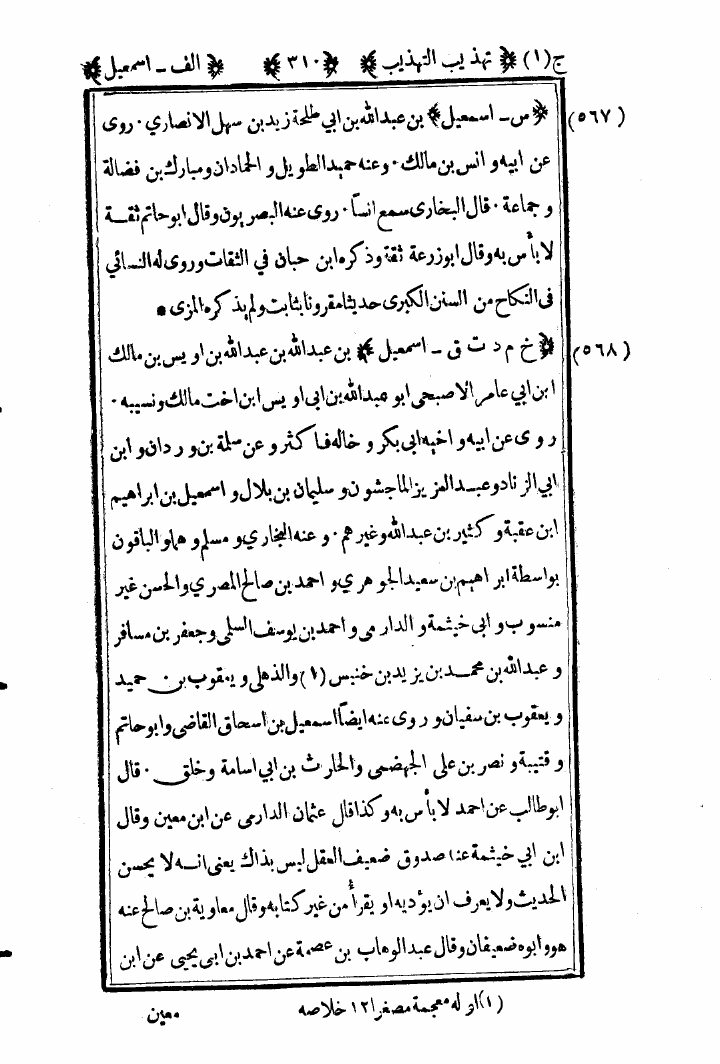 ج(١) ﴿ تهذيب التهذيب ﴾ ﴿ ٣١٠ ﴾ ﴿ الف ـ اسمعيل ﴾
(٥٦٧) ﴿ س ـ اسمعيل ﴾ بن عبدالله بن ابي طلحة زيد بن سهل الانصاري · روى
عن ابيه و انس بن مالك · وعنه حميد الطويل و الحمادان و مبارك بن فضالة
و جماعة · قال البخارى سمع انساً · روى عنه البصريون وقال ابو حاتم ثقة
لا بأس به وقال ابو زرعة ثقة وذكره ابن حبان في الثقات وروى له النسائي
فى النكاح من السنن الكبرى حديثا مقرونا بثابت ولم يذكره المزى •
(٥٦٨) ﴿ خ م د ت ق ـ اسمعيل ﴾ بن عبدالله بن عبدالله بن اويس بن مالك
ابن ابي عامر الاصبحى ابو عبدالله بن ابى اويس ابن اخت مالك ونسيبه ·
روى عن ابيه و اخيه ابى بكر و خاله فاكثر و عن سلمة بن وردان و ابن
ابي الزناد و عبد العزيز الماجشون و سليمان بن بلال و اسمعيل بن ابراهيم
ابن عقبة و كثير بن عبدالله وغيرهم · و عنه البخاري و مسلم و هما و الباقون
بواسطة ابراهيم بن سعيد الجوهري و احمد بن صالح المصري و الحسن غير
منسوب و ابى خيثمة و الدارمى و احمد بن يوسف السلمى و جعفر بن مسافر
و عبدالله بن محمد بن يزيد بن خنيس (١) والذهلى و يعقوب بن حميد
و يعقوب بن سفيان و روى عنه ايضاً اسمعيل بن اسحاق القاضى و ابو حاتم
و قتيبة و نصر بن على الجهضمى والحارث بن ابي اسامة وخلق · قال
ابو طالب عن احمد لا بأس به و كذا قال عثمان الدارمى عن ابن معين وقال
ابن ابي خيثمة عنه صدوق ضعيف العقل ليس بذاك يعنى انه لا يحسن
الحديث ولا يعرف ان يؤديه او يقرأ من غير كتابه وقال معاوية بن صالح عنه
هو و ابوه ضعيفان وقال عبد الوهاب بن عصمة عن احمد بن ابى يحيى عن ابن
(١) اوله معجمة مصغرا ١٢ خلاصه
معين